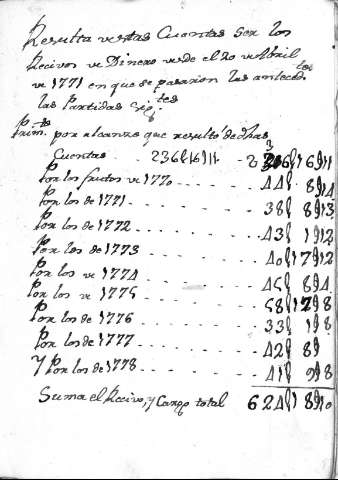 Resulta de estas Cuentas ser los
Recivos de Dinero desde el 20 de Abril
de 1771 en que se pasaron las antecedentes
las Partidas sig.tes
Prim.te por alcanze que resultó de dhas
Cuentas . 236l16s11 - 236l16s11
Por los frutos de 1770 44l 8s4
Por los de 1771 38l 8s13
Por los de 1772 43l 1s12
Por los de 1773 40l17s12
Por los de 1774 45l 8s4
Por los de 1775 58l12s8
Por los de 1776 33l 1s8
Por los de 1777 42l 8s
Y Por los de 1778 41l 9s8
Suma el Recivo, y Cargo total 624l18s10